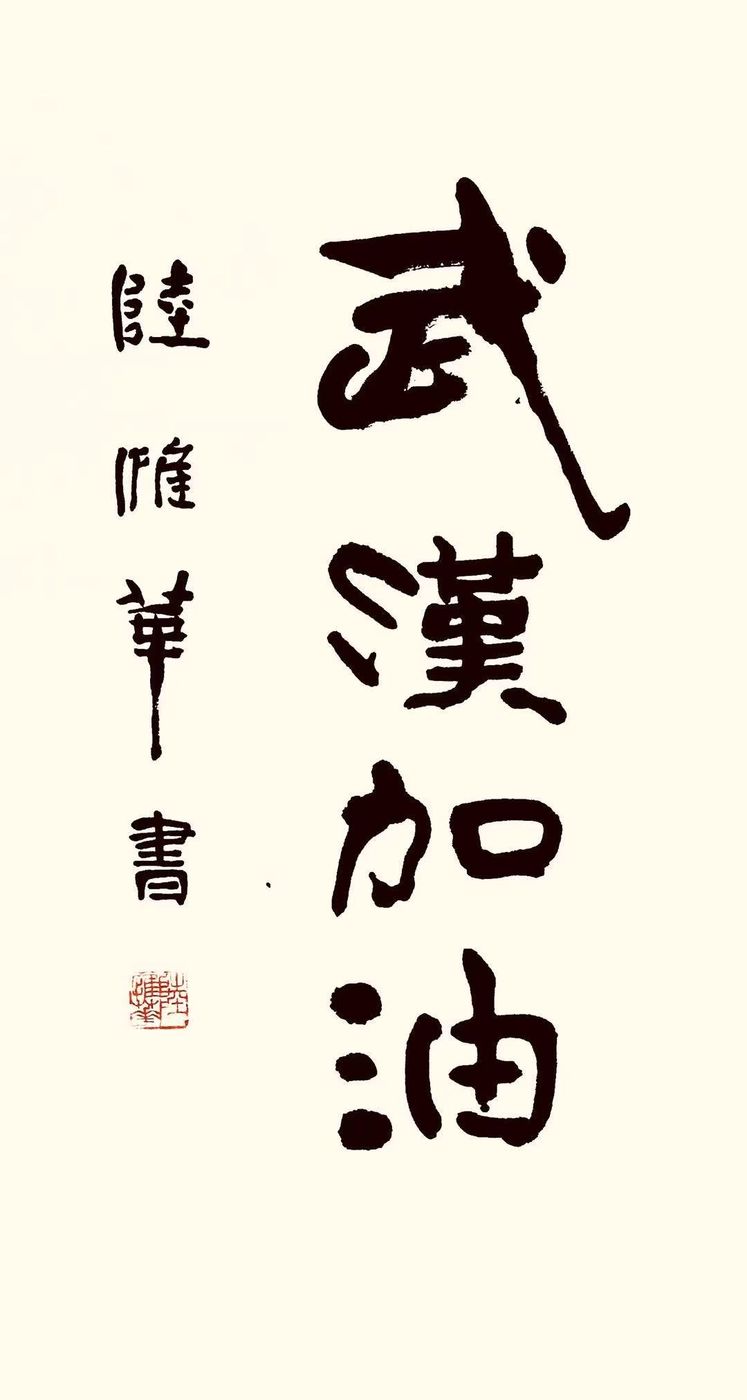 武漢加油
陸惟華書